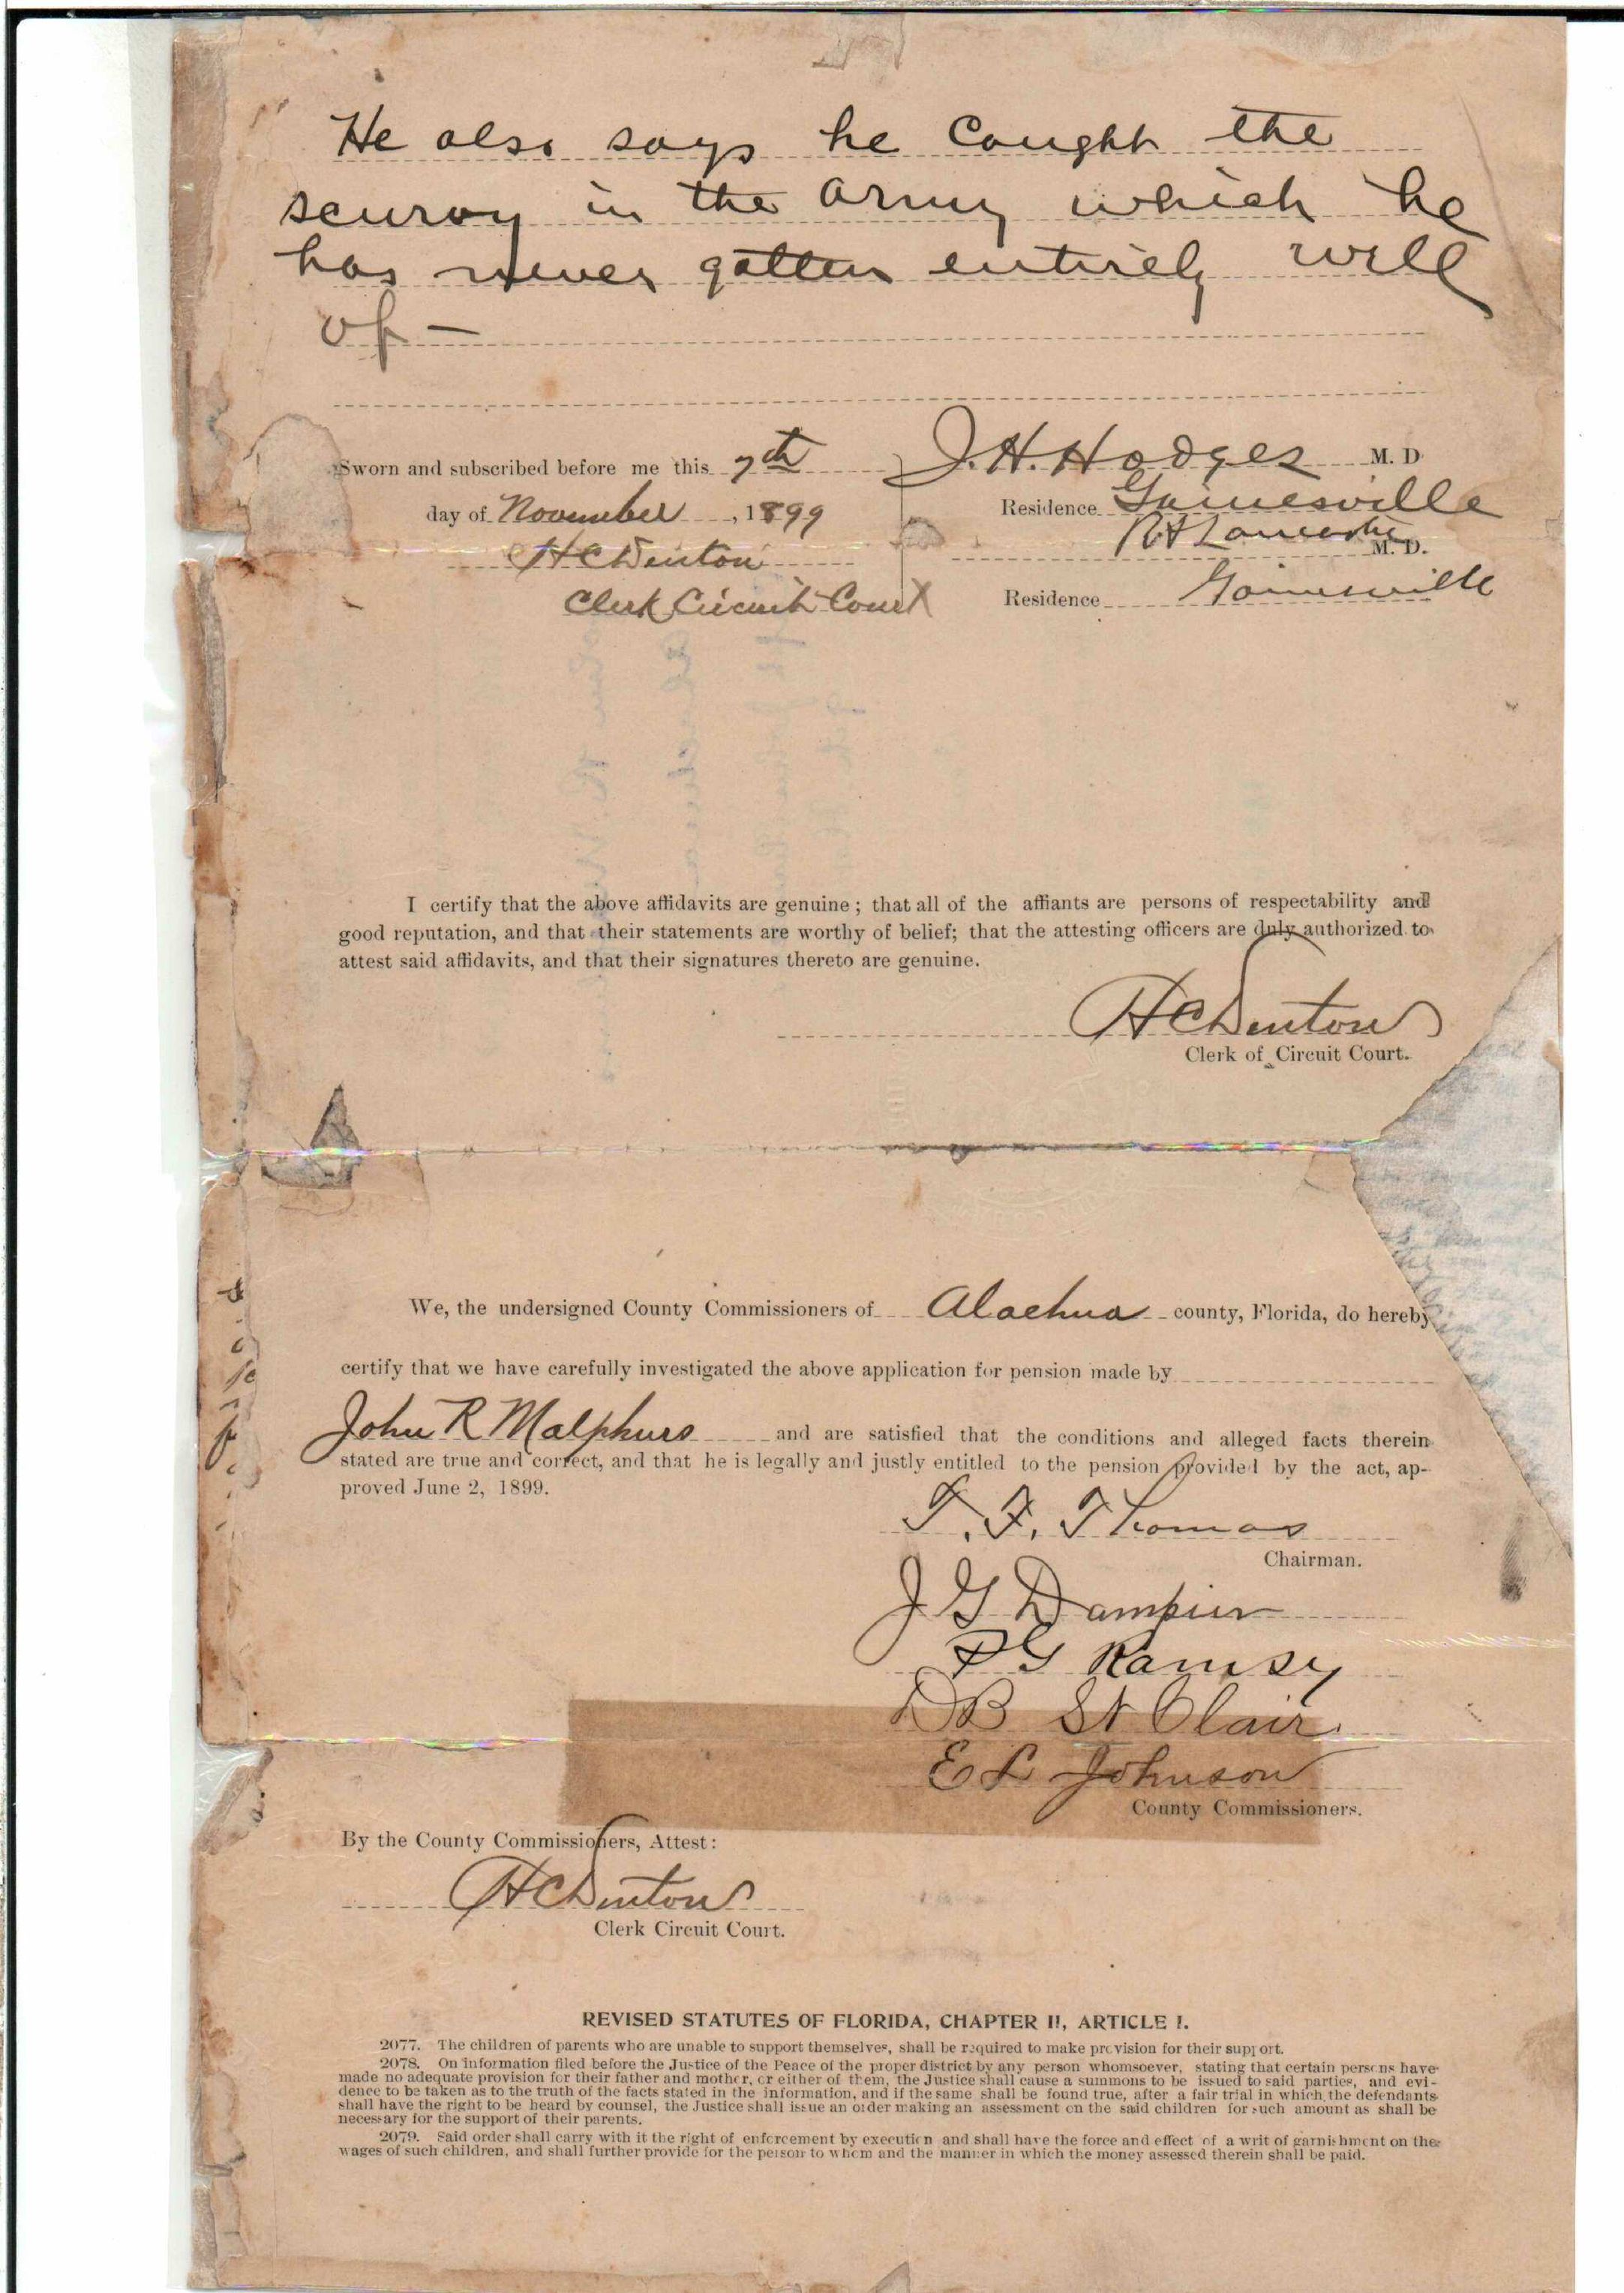 He also says he Caught the
scurvy in the army which he
has never gotten entirely well
of —
Sworn and subscribed before me this 7th
day of November, 1899
H C Denton
Clerk Circuit Court
J. H. Hodges M. D
Residence Gainesville
R H Lancaster M. D.
Residence Gainesville
I certify that the above affidavits are genuine; that all of the affiants are persons of respectability and
good reputation, and that their statements are worthy of belief; that the attesting officers are duly authorized to
attest said affidavits, and that their signatures thereto are genuine.
H C Denton
Clerk of Circuit Court.
We, the undersigned County Commissioners of Alachua county, Florida, do hereby
certify that we have carefully investigated the above application for pension made by
John R Malphurs and are satisfied that the conditions and alleged facts therein
stated are true and correct, and that he is legally and justly entitled to the pension provided by the act, ap-
proved June 2, 1899.
T. F. Thomas
Chairman.
J G Dampier
P G Ramsey
D B St Clair
E L Johnson
County Commissioners.
By the County Commissioners, Attest:
H C Denton
Clerk Circuit Court.
REVISED STATUTES OF FLORIDA, CHAPTER II, ARTICLE I.
2077. The children of parents who are unable to support themselves, shall be required to make provision for their support.
2078. On information filed before the Justice of the Peace of the proper district by any person whomsoever, stating that certain persons have
made no adequate provision for their father and mother, or either of them, the Justice shall cause a summons to be issued to said parties, and evi-
dence to be taken as to the truth of the facts stated in the information, and if the same shall be found true, after a fair trial in which the defendants
shall have the right to be heard by counsel, the Justice shall issue an order making an assessment on the said children for such amount as shall be
necessary for the support of their parents.
2079. Said order shall carry with it the right of enforcement by execution and shall have the force and effect of a writ of garnishment on the
wages of such children, and shall further provide for the person to whom and the manner in which the money assessed therein shall be paid.